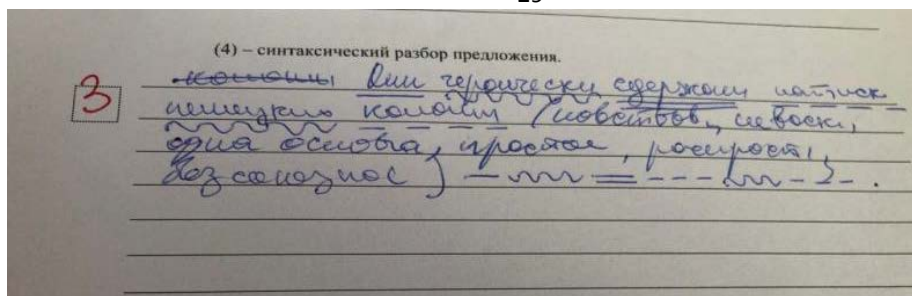 (4) – синтаксический разбор предложения.
3 колонны Они героически сдержали натиск
немецких колонн (повеств., невоскл,
одна основа, простое, распрост,
без союзное)